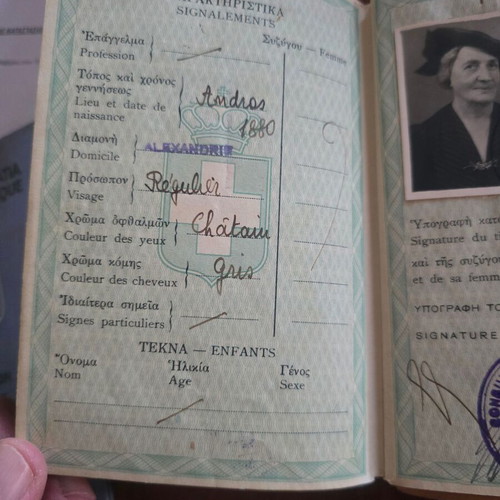 ΧΑΡΑΚΤΗΡΙΣΤΙΚΑ
SIGNALEMENTS
Συζύγου — Femme
Ἐπάγγελμα
Profession
Τόπος καὶ χρόνος
γεννήσεως
Lieu et date de
naissance
Andros
1880
Διαμονὴ
Domicile
ALEXANDRIE
Πρόσωπον
Visage
Régulier
Χρῶμα ὀφθαλμῶν
Couleur des yeux
Châtain
Χρῶμα κόμης
Couleur des cheveux
Gris
Ἰδιαίτερα σημεῖα
Signes particuliers
ΤΕΚΝΑ — ENFANTS
Ὄνομα
Nom
Ἡλικία
Age
Γένος
Sexe
Ὑπογραφὴ
Signature du
καὶ τῆς συζύγο
et de sa femme
ΥΠΟΓΡΑΦΗ ΤΟ
SIGNATURE